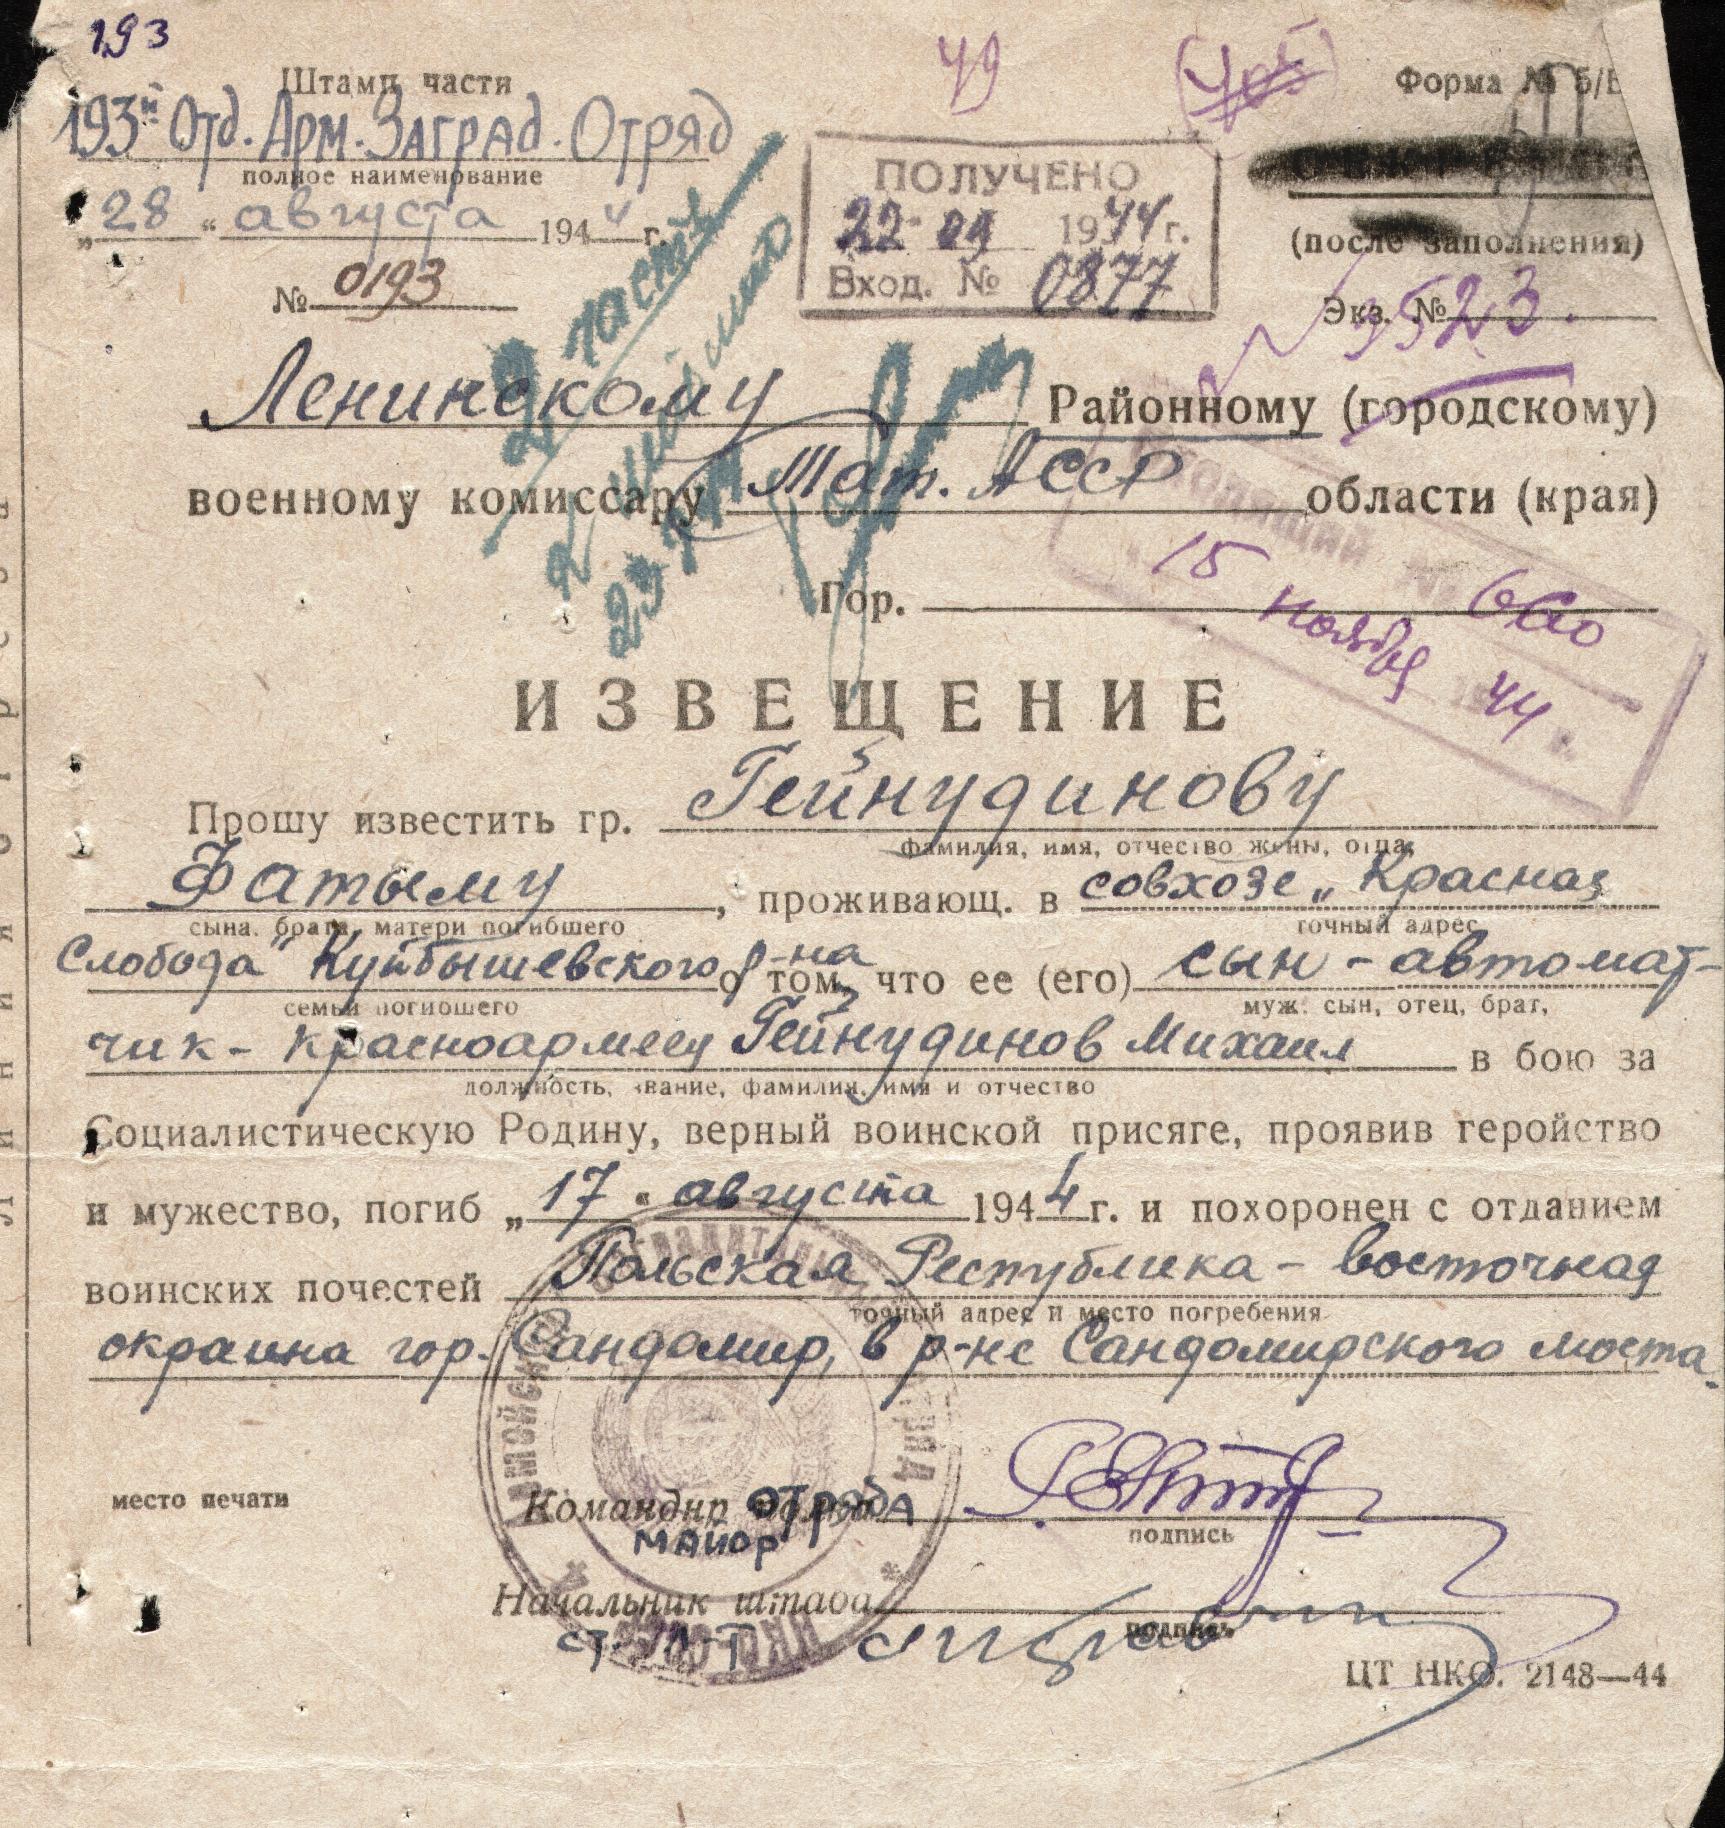 193
49
Штамп части
Форма № 5/Б
193й Отд. Арм. Заград. Отряд
полное наименование
ПОЛУЧЕНО
22 09 1944 г.
Вход. № 0877
(после заполнения)
„28“ августа 1944 г.
№ 0193
Экз. №
3523.
Ленинскому Районному (городскому)
военному комиссару Тат. АССР области (края)
Гор.
15 ноября 44
ИЗВЕЩЕНИЕ
Прошу известить гр. Гейнудинову
фамилия, имя, отчество жены, отца,
Фатыму, проживающ. в совхозе „Красная
сына, брата, матери погибшего
точный адрес
Слобода“ Куйбышевского р-на о том, что ее (его) сын - автомат-
семьи погибшего
муж, сын, отец, брат,
чик - красноармеец Гейнудинов Михаил в бою за
должность, звание, фамилия, имя и отчество
Социалистическую Родину, верный воинской присяге, проявив геройство
и мужество, погиб „17“ августа 1944 г. и похоронен с отданием
воинских почестей Польская Республика - восточная
точный адрес и место погребения
окраина гор. Сандомир, в р-не Сандомирского моста.
место печати
Командир отряда
майор
подпись
Начальник штаба
ст. л-т
подпись
ЦТ НКО. 2148—44